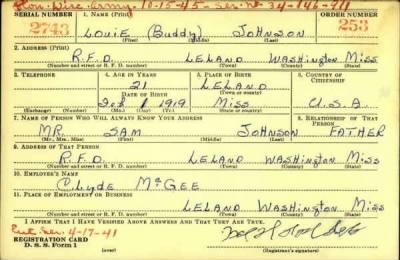 Hon. Disc. Army. 10-15-45 - Ser. No 34-146-911
SERIAL NUMBER 1. NAME (Print) ORDER NUMBER
2743 LOUIE (Buddy) JOHNSON 253
(First) (Middle) (Last)
2. ADDRESS (Print)
R.F.D. LELAND WASHINGTON MISS
(Number and street or R. F. D. number) (Town) (County) (State)
3. TELEPHONE 4. AGE IN YEARS 5. PLACE OF BIRTH 6. COUNTRY OF CITIZENSHIP
21 LELAND
DATE OF BIRTH (Town or county)
1 1919 MISS U.S.A.
(Exchange) (Number) (Mo.) (Day) (Yr.) (State or country)
7. NAME OF PERSON WHO WILL ALWAYS KNOW YOUR ADDRESS 8. RELATIONSHIP OF THAT PERSON
MR. SAM JOHNSON FATHER
(Mr., Mrs., Miss) (First) (Middle) (Last)
9. ADDRESS OF THAT PERSON
R.F.D. LELAND WASHINGTON MISS
(Number and street or R. F. D. number) (Town) (County) (State)
10. EMPLOYER'S NAME
Clyde McGEE
11. PLACE OF EMPLOYMENT OR BUSINESS
LELAND WASHINGTON MISS
(Number and street or R. F. D. number) (Town) (County) (State)
I AFFIRM THAT I HAVE VERIFIED ABOVE ANSWERS AND THAT THEY ARE TRUE.
Ent. Ser. 4-17-41
REGISTRATION CARD
D. S. S. Form 1 (over) (Registrant's signature)